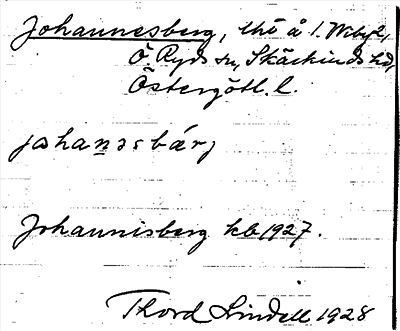 Johannesberg, lhö å 1. Wiby,
Ö. Ryds sn, Skärkinds hd,
Östergötl. l.
johanəsbärj
Johannisberg kb 1927.
Thord Lindell 1928